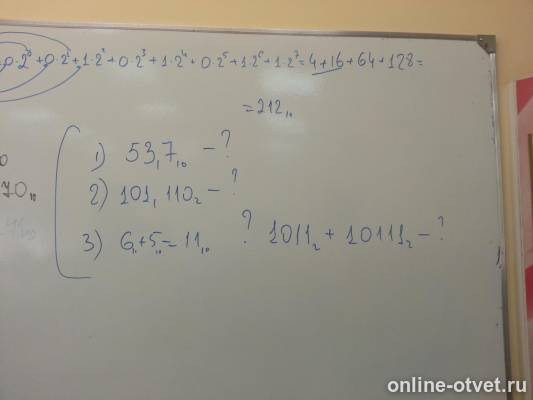 0·2⁰+0·2¹+1·2²+0·2³+1·2⁴+0·2⁵+1·2⁶+1·2⁷=4+16+64+128=
=212₁₀
1) 53,7₁₀ – ?
70₁₀
2) 101,110₂ – ?
3) 6₁₀+5₁₀=11₁₀ ? 1011₂ + 10111₂ – ?
online-otvet.ru